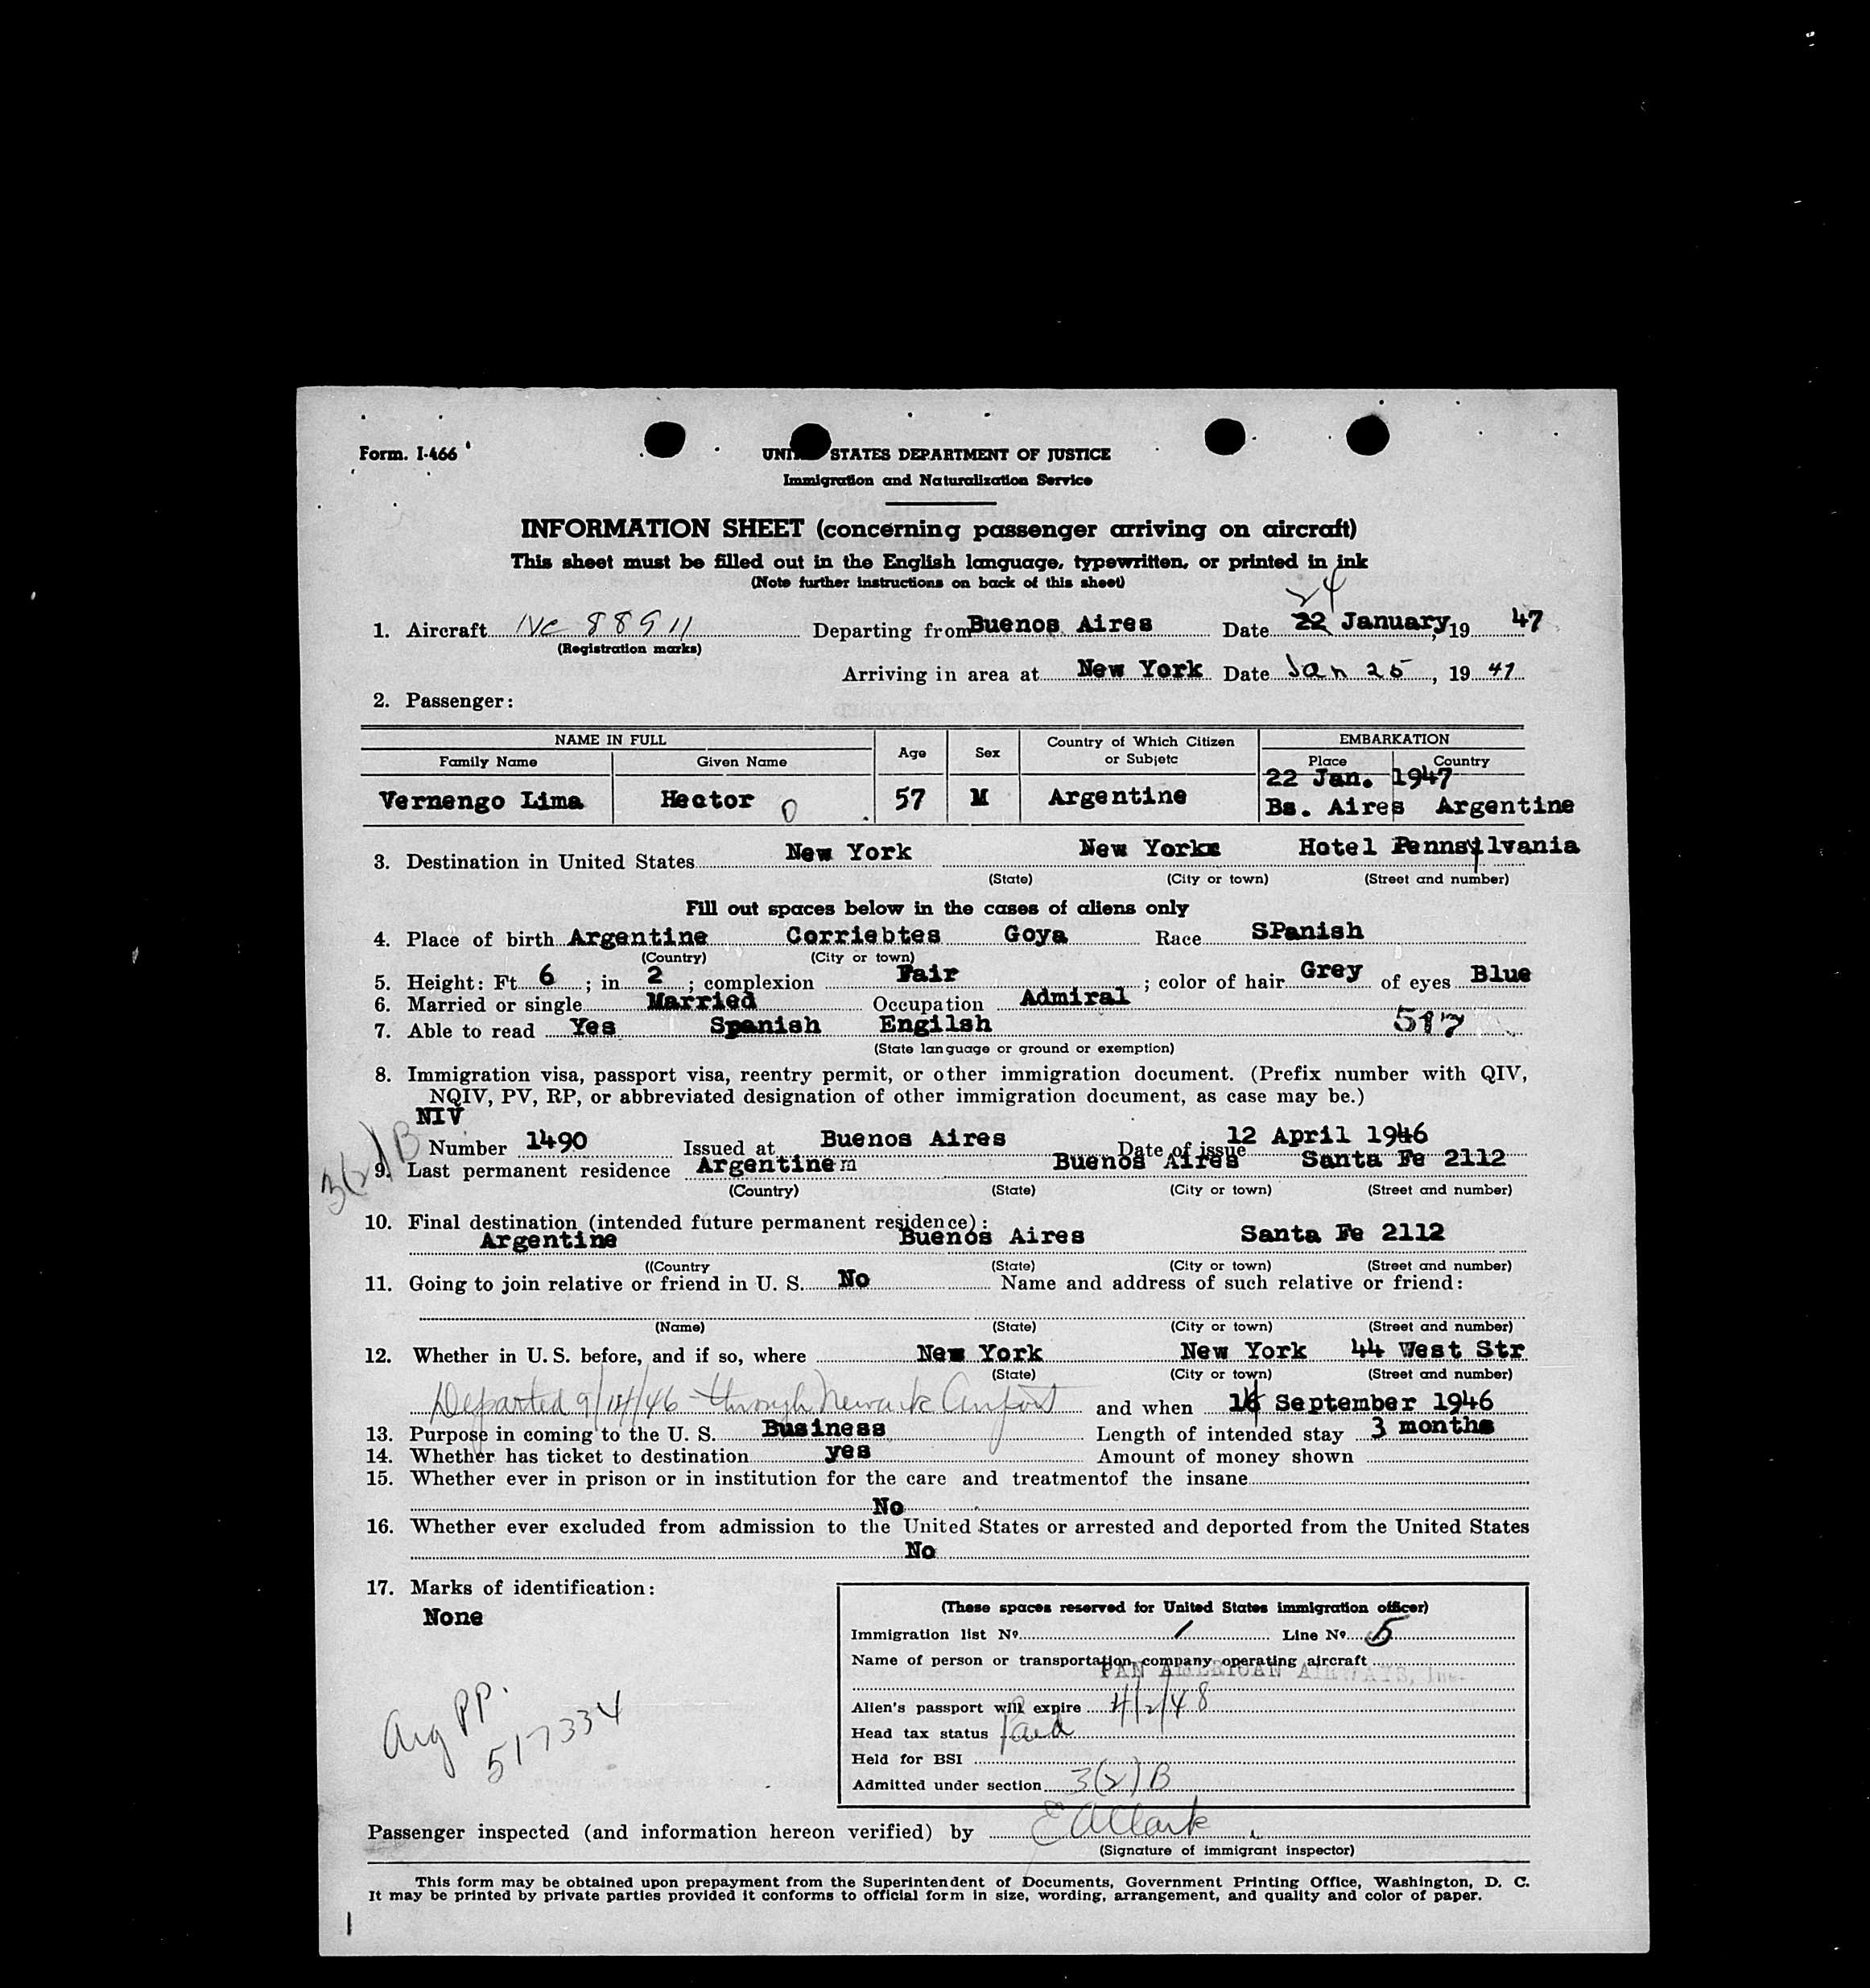 Form. I-466
UNI STATES DEPARTMENT OF JUSTICE
Immigration and Naturalization Service
INFORMATION SHEET (concerning passenger arriving on aircraft)
This sheet must be filled out in the English language, typewritten, or printed in ink
(Note further instructions on back of this sheet)
24
1. Aircraft NC 88911 Departing from Buenos Aires Date 22 January, 19 47
(Registration marks)
Arriving in area at New York Date Jan 25, 19 47
2. Passenger:
NAME IN FULL Age Sex Country of Which Citizen or Subjetc EMBARKATION
Family Name Given Name Place Country
22 Jan. 1947
Vernengo Lima Hector O 57 M Argentine Bs. Aires Argentine
3. Destination in United States New York New York Hotel Pennsylvania
(State) (City or town) (Street and number)
Fill out spaces below in the cases of aliens only
4. Place of birth Argentine Corriebtes Goya Race SPanish
(Country) (City or town)
5. Height: Ft. 6 ; in 2 ; complexion Fair ; color of hair Grey of eyes Blue
6. Married or single Married Occupation Admiral
7. Able to read Yes Spanish Engilsh 517
(State language or ground or exemption)
8. Immigration visa, passport visa, reentry permit, or other immigration document. (Prefix number with QIV,
NQIV, PV, RP, or abbreviated designation of other immigration document, as case may be.)
NIV
3(2)B
Number 1490 Issued at Buenos Aires Date of issue 12 April 1946
9. Last permanent residence Argentine Buenos Aires Santa Fe 2112
(Country) (State) (City or town) (Street and number)
10. Final destination (intended future permanent residence):
Argentine Buenos Aires Santa Fe 2112
((Country (State) (City or town) (Street and number)
11. Going to join relative or friend in U. S. No Name and address of such relative or friend:
(Name) (State) (City or town) (Street and number)
12. Whether in U. S. before, and if so, where New York New York 44 West Str
(State) (City or town) (Street and number)
Departed 9/14/46 through Newark Airport and when 14 September 1946
13. Purpose in coming to the U. S. Business Length of intended stay 3 months
14. Whether has ticket to destination yes Amount of money shown
15. Whether ever in prison or in institution for the care and treatmentof the insane
No
16. Whether ever excluded from admission to the United States or arrested and deported from the United States
No
17. Marks of identification:
None
(These spaces reserved for United States immigration officer)
Immigration list Nº 1 Line Nº 5
Name of person or transportation company operating aircraft
PAN AMERICAN AIRWAYS, Inc.
Alien's passport will expire 4/2/48
Head tax status Paid
Held for BSI
Admitted under section 3(2)B
Arg PP.
517334
Passenger inspected (and information hereon verified) by E A Clark
(Signature of immigrant inspector)
This form may be obtained upon prepayment from the Superintendent of Documents, Government Printing Office, Washington, D. C.
It may be printed by private parties provided it conforms to official form in size, wording, arrangement, and quality and color of paper.